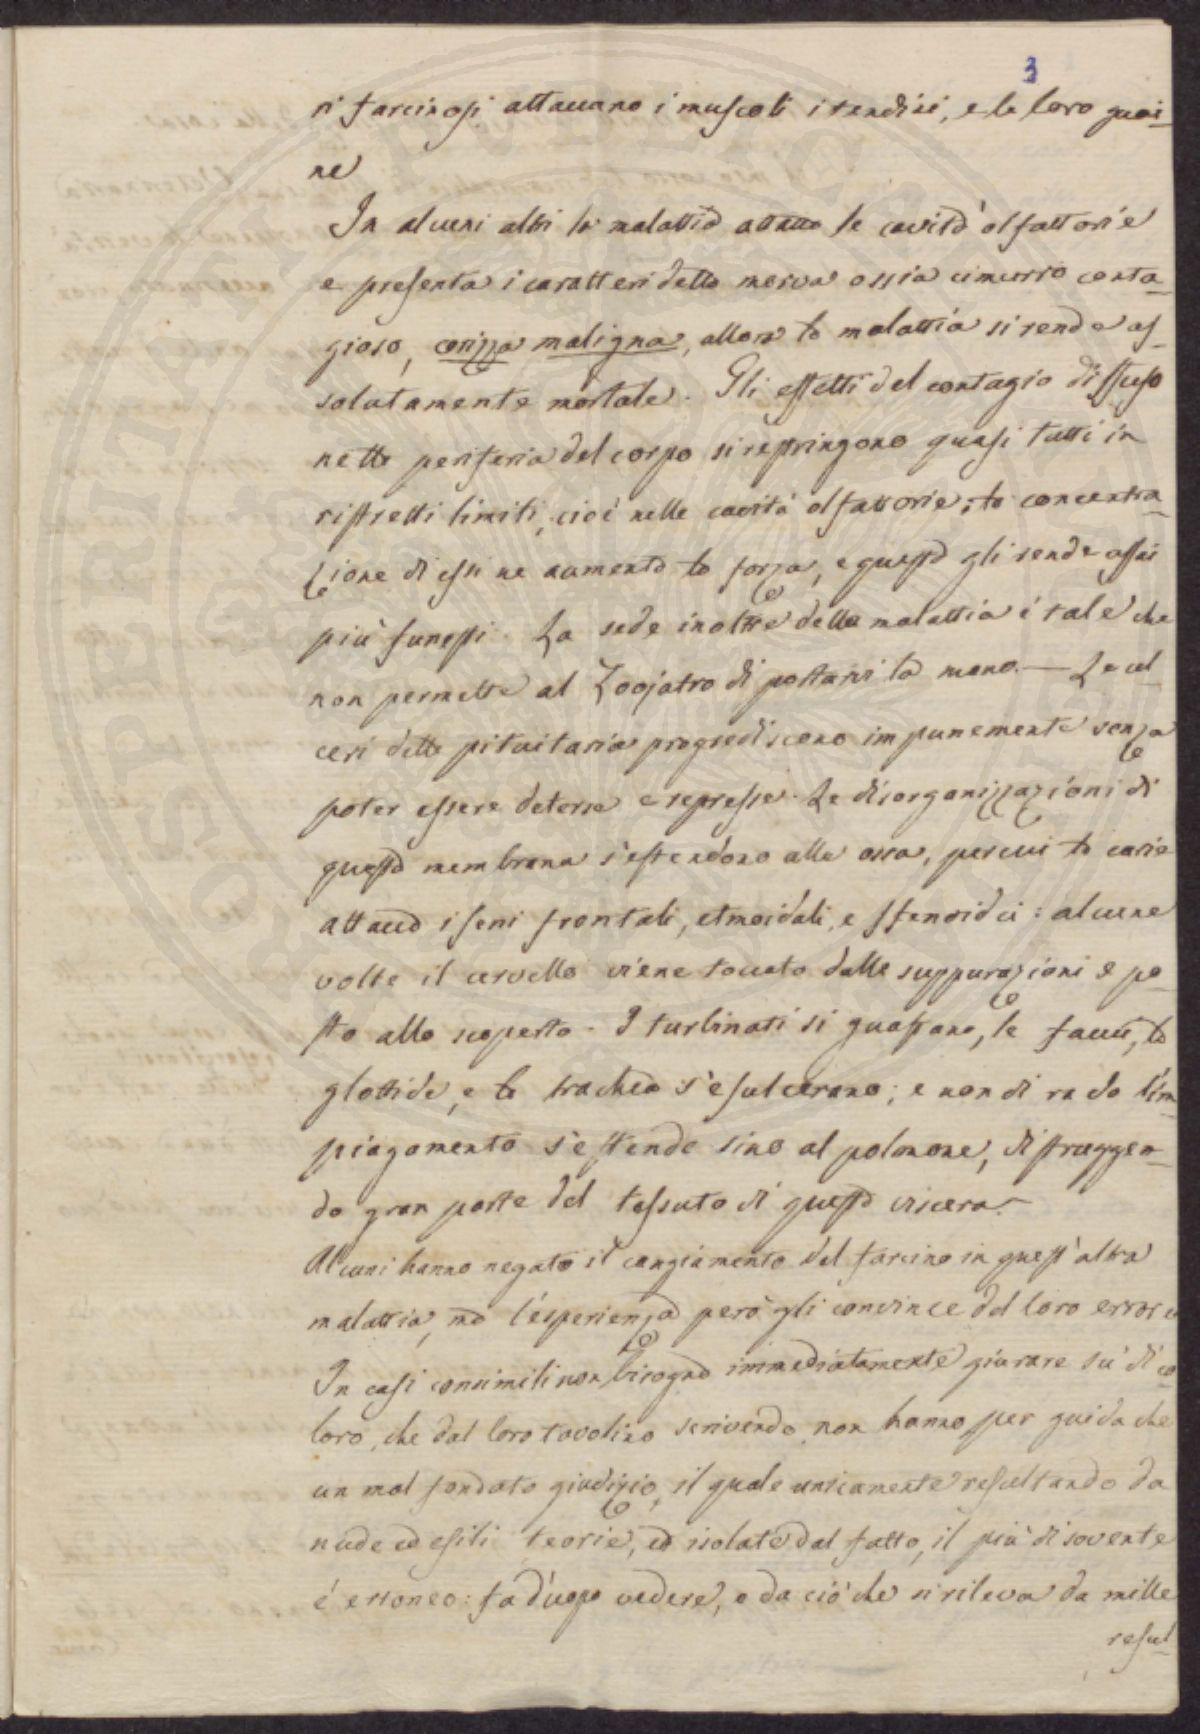 3
ri farcinosi attaccano i muscoli i tendini, e le loro guai-
ne
In alcuni altri la malattia attacca le cavità olfattorie
e presenta i caratteri della morva ossia cimurro conta-
gioso, corizza maligna, allora la malattia si rende as-
solutamente mortale. Gli effetti del contagio diffuso
nella periferia del corpo si respringono quasi tutti in
ristretti limiti, cioè nelle cavità olfattorie; la concentra-
zione di essi ne aumenta la forza, e questa gli rende assai
più funesti. La sede inoltre della malattia è tale che
non permette al Zoojatro di portarvi la mano. — Le ul-
ceri della pituitaria progrediscono impunemente senza
poter essere deterse e represse. Le disorganizzazioni di
questa membrana s'estendono alle ossa, per cui la carie
attacca i seni frontali, etmoidali, e sfenoidei: alcune
volte il cervello viene toccato dalle suppurazioni e po-
sto allo scoperto. I turbinati si guastano, le fauci, la
glottide, e la trachea s'esulcerano; e non di rado l'im-
piagamento s'estende sino al polmone, distruggen-
do gran parte del tessuto di questo viscera.
Alcuni hanno negato il cangiamento del farcino in quest'altra
malattia, ma l'esperienza però gli convince del loro errore
In casi consimili non bisogna immediatamente giurare su di co
loro, che dal loro tavolino scrivendo non hanno per guida che
un mal fondato giudizio, il quale unicamente resultando da
nude ed esili teorie, ed isolate dal fatto, il più di sovente
é erroneo: fa d'uopo vedere, e da ciò che si rileva da mille
resul-